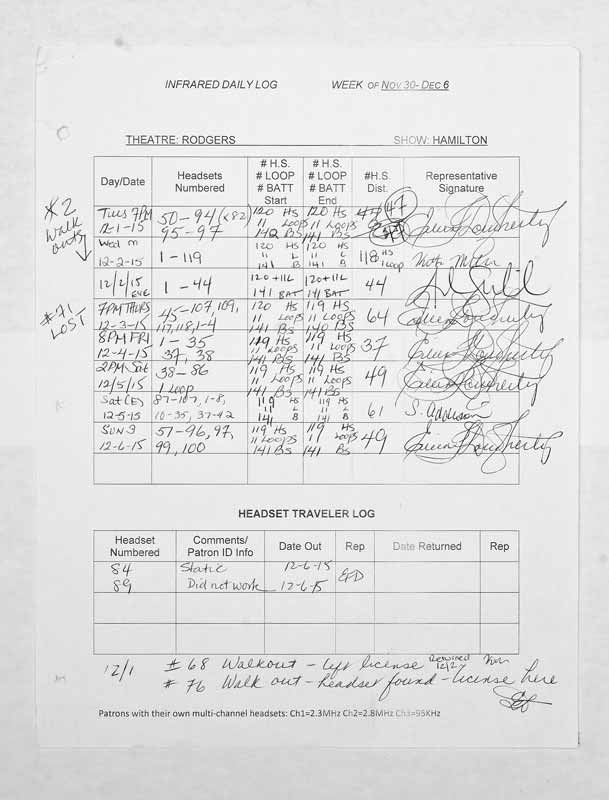 INFRARED DAILY LOG WEEK OF NOV 30- DEC 6
THEATRE: RODGERS SHOW: HAMILTON
Day/Date Headsets Numbered # H.S. # LOOP # BATT Start # H.S. # LOOP # BATT End #H.S. Dist. Representative Signature
*2 Walk outs
Tues 7PM 12-1-15 50-94 (x82) 95-97 120 HS 11 Loops 142 BS 120 HS 11 Loops 141 BS 47
Wed m 12-2-15 1-119 120 HS 11 L 141 B 120 HS 11 L 141 B 118 HS 1 Loop
12/2/15 EVE 1-44 120+11L 141 BAT 120+11L 141 BAT 44
#71 LOST
7PM THURS 12-3-15 45-107, 109, 117, 118, 1-4 120 HS 11 Loops 141 BS 119 HS 11 Loops 140 BS 64
8PM FRI 12-4-15 1-35 37, 38 119 HS 11 Loops 141 BS 119 HS 11 Loops 141 BS 37
2PM Sat 12/5/15 38-86 1 Loop 119 HS 11 Loops 141 BS 119 HS 11 Loops 141 BS 49
Sat (E) 12-5-15 87-107, 1-8, 10-35, 37-42 119 HS 11 L 141 B 119 HS 11 L 141 B 61 S. Addison
SUN 3 12-6-15 57-96, 97, 99, 100 119 HS 11 Loops 141 BS 119 HS 11 Loops 141 BS 49
HEADSET TRAVELER LOG
Headset Numbered Comments/ Patron ID Info Date Out Rep Date Returned Rep
84 Static 12-6-15 EFD
89 Did not work 12-6-15
12/1 # 68 Walkout - left license Returned 12/2
# 76 Walk out - headset found - license here
Patrons with their own multi-channel headsets: Ch1=2.3MHz Ch2=2.8MHz Ch3=95KHz